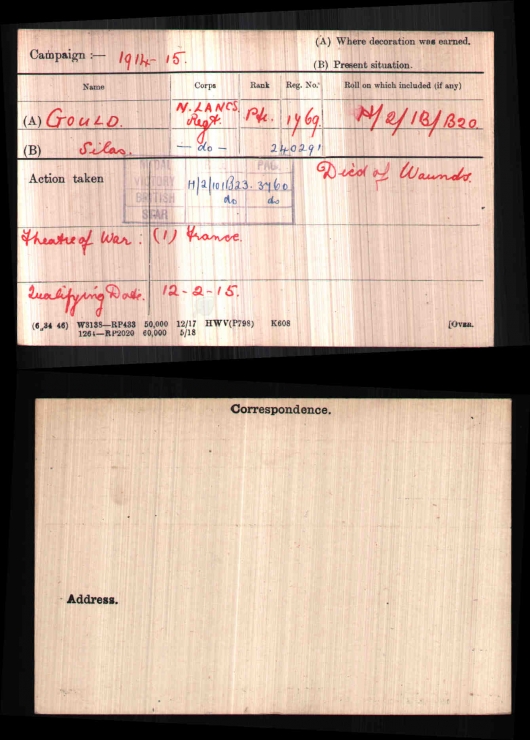 (A) Where decoration was earned.
Campaign :— 1914-15.
(B) Present situation.
Name Corps Rank Reg. No. Roll on which included (if any)
(A) GOULD. N. LANCS. Regt. Pte. 1769. H/2/1B/B20
(B) Silas. — do — 240291
Action taken Died of Wounds.
MEDAL PAGE.
VICTORY H/2/101B23. 3760
BRITISH do do
STAR
Theatre of War : (1) France.
Qualifying Date. 12-2-15.
(6 34 46) W3138—RP433 50,000 12/17 HWV(P798) K608 [Over.
1264—RP2020 60,000 5/18
Correspondence.
Address.